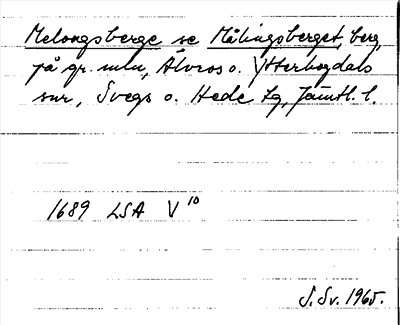 Melongsberge se Målingsberget, berg
på gr. mln, Älvros o. Ytterhogdals
snr, Svegs o. Hede tg, Jämtl. l.
1689 LSA V 10
S. Sv. 1965.